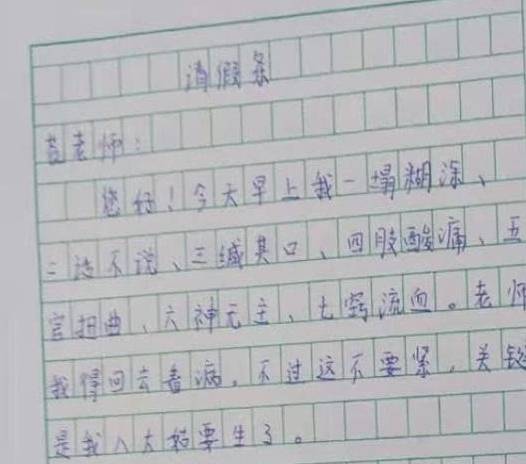 请假条
袁老师:
您好!今天早上我一塌糊涂、
二话不说、三缄其口、四肢酸痛、五
官扭曲、六神无主、七窍流血。老师
我得回去看病,不过这不要紧,关键
是我八大姑要生了。